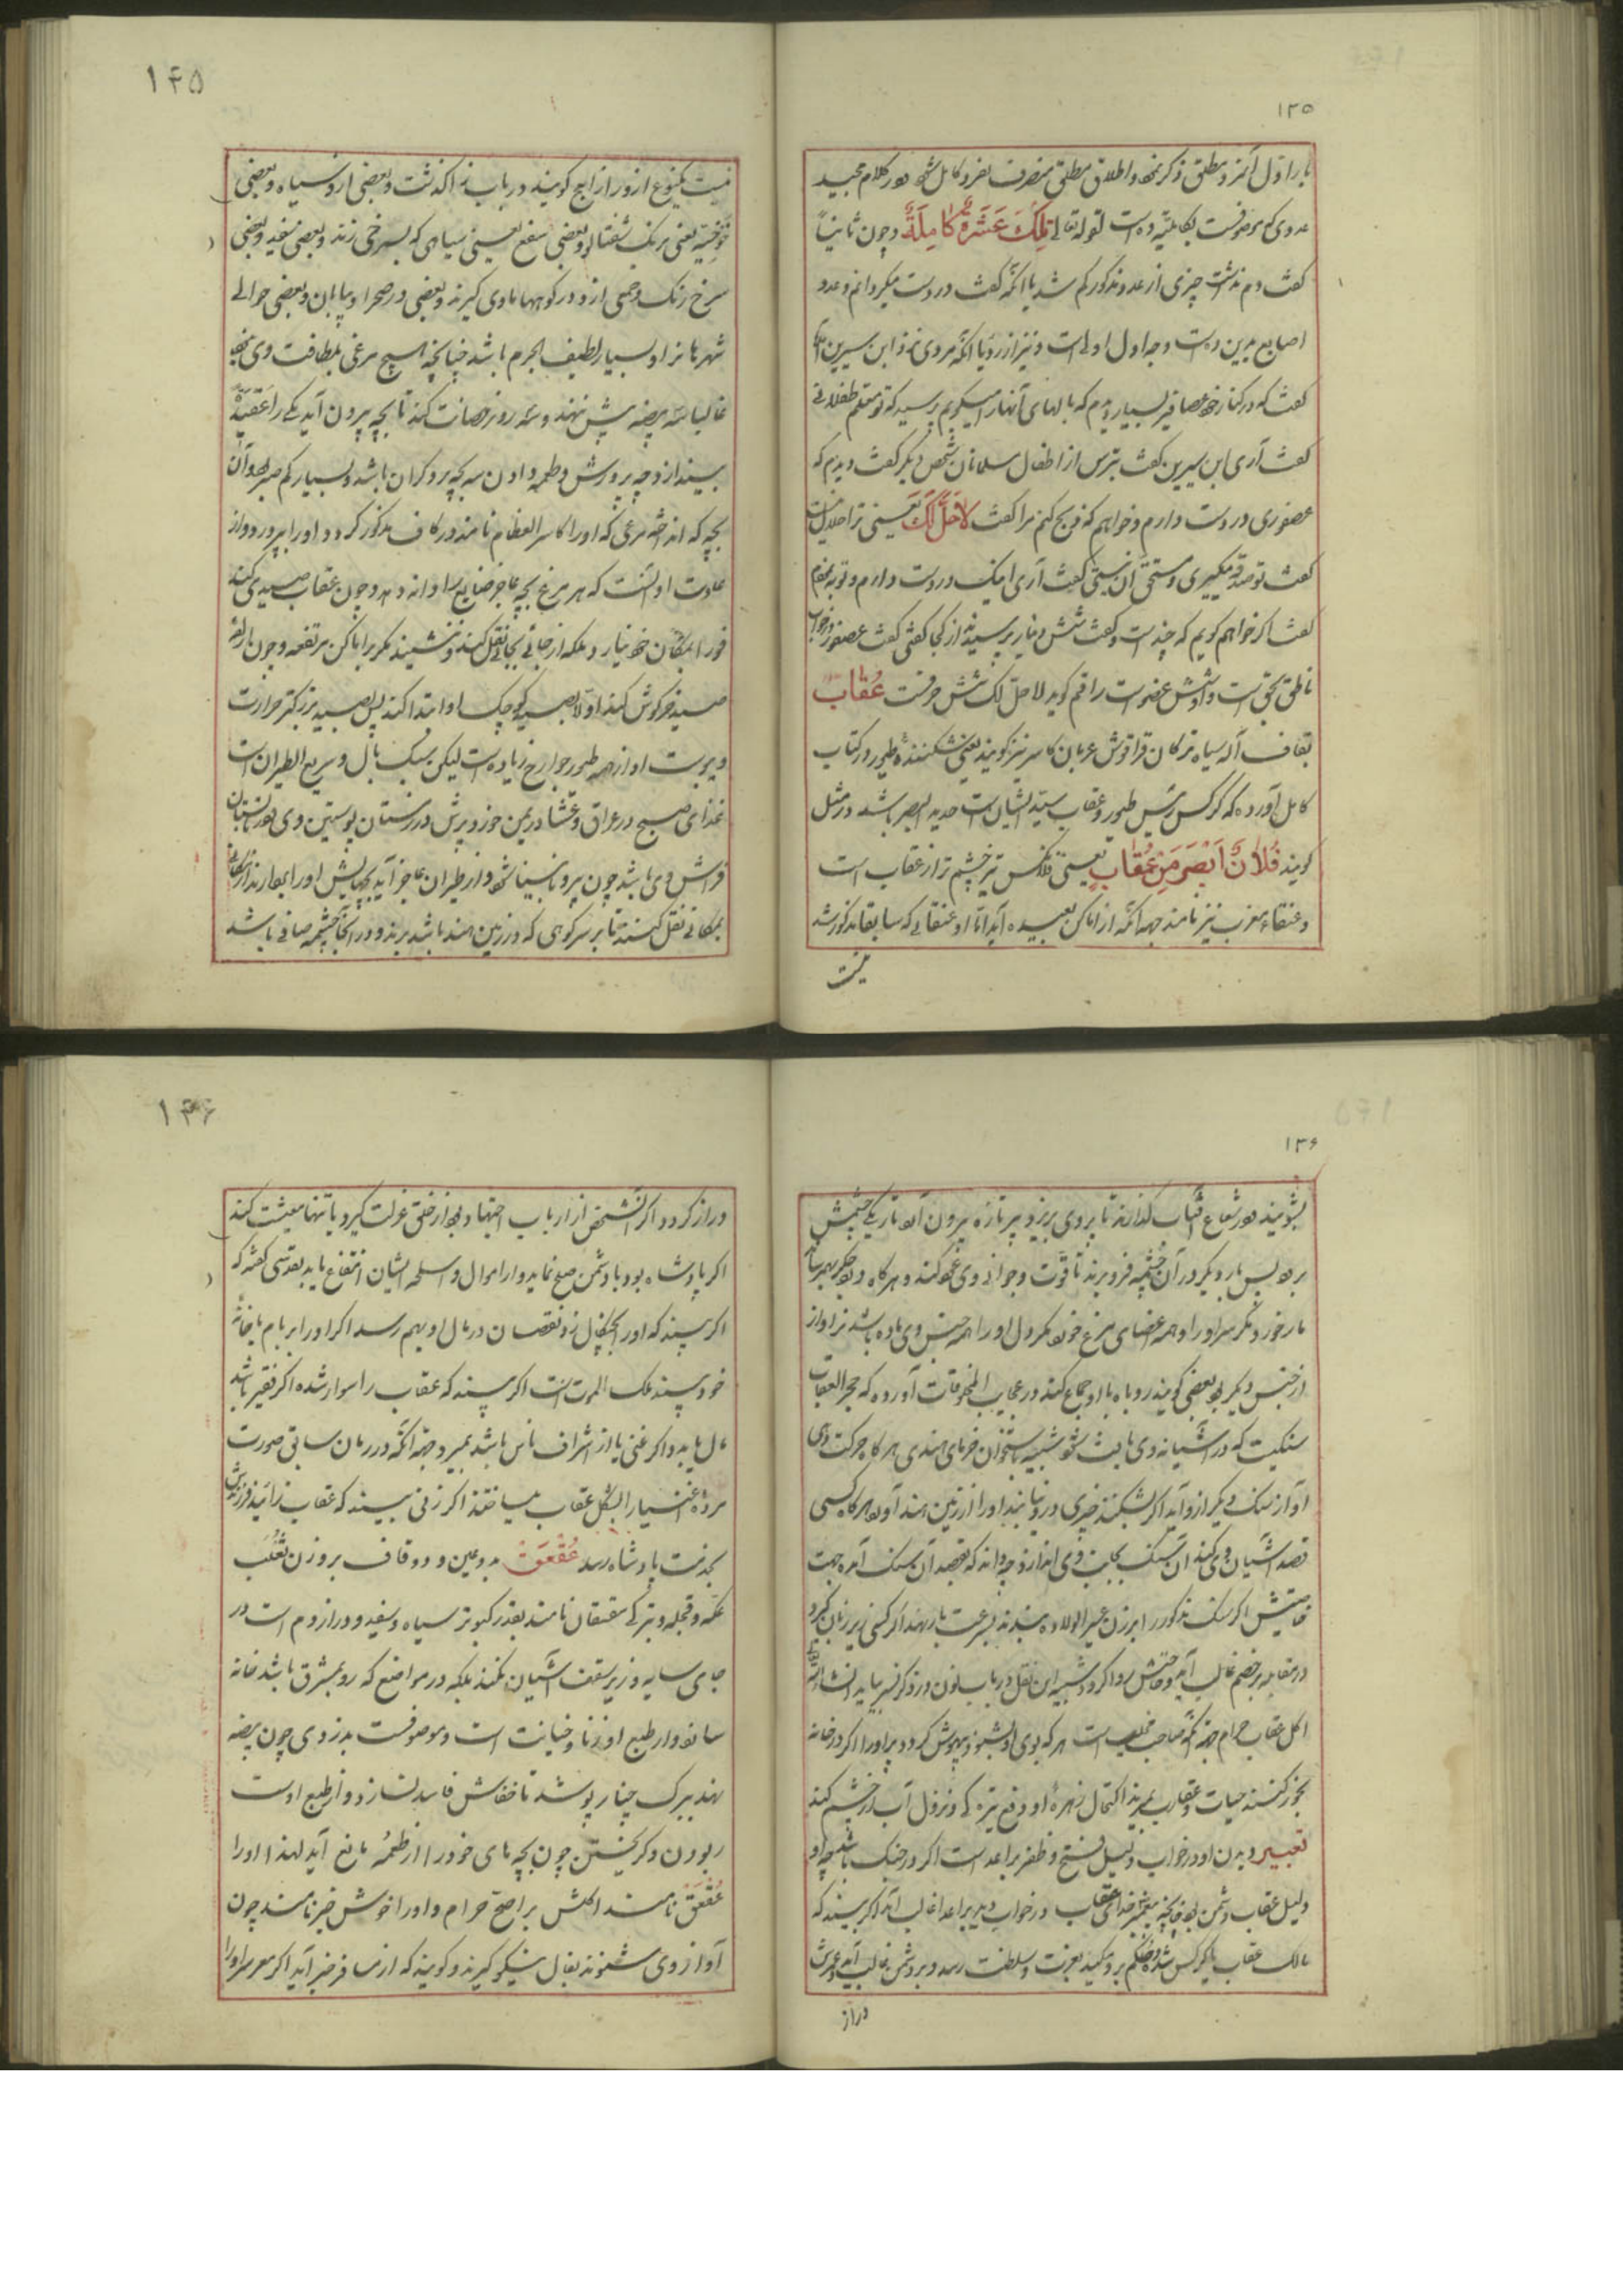 ۱۳۵
بار اول آنرو مطلق ذکر نمود و اطلاق مطلق منصرف بفرد کامل شود در کلام مجید
عددی که موصوفست بکاملیه ده است لقوله تعالی تِلْكَ عَشَرَةٌ كَامِلَةٌ و چون ثانیاً
کفت دم نداشت چیزی از عدد مذکور کم شد یا آنکه کفت در دست میکردانم و عدد
اصابع یدین ده است وجه اول اولی است و نیز از رؤیا آنکه مروی نزد ابن سیرین آمد
کفت که در کنار خود عصافیر بسیار دیدم که بالهای آنها را میکویم پرسید که تو معلم طفلانی
کفت آری ابن سیرین کفت بترس از اطفال مسلمانان شخص دیکر کفت دیدم که
عصفوری در دست دارم و خواهم که ذبح کنم مرا کفت لَا حَلَّ لَكَ یعنی ترا حلال نیست
کفت تو صدقه میکیری و مستحق آن نیستی کفت آری اینک در دست دارم و توبه نمودم
کفت اکر خواهم کویم که چند است و کفت شش دینار پرسیدند از کجا کفتی کفت عصفور در خواب
ناطق بحق است و او شش عضو است راقم کوید لا حل لک شش حرفست عُقاب
بقاف آله سیاه ترکان قراقوش عربان کاسر نیز کویند یعنی شکننده طیور در کتاب
کامل آورده که کرکس رئیس طیور و عقاب سید ایشان است حدید البصر باشد در مثل
کویند فُلَانٌ اَبْصَرَ مِنْ عُقَابٍ یعنی فلانکس تیز چشم تر از عقاب است
و عنقاء مغرب نیز نامند جهه آنکه از اماکن بعیده آید اما او عنقائی که سابقا مذکور شد
نیست
۱۴۵
نیست یکنوع از او را زمج کویند در باب زا کذشت و بعضی از او سیاه و بعضی
خوخیه یعنی برنک شفتالو و بعضی سفع یعنی سیاهی که بسرخی زند و بعضی سفید و بعضی
سرخ رنک و جمعی از او در کوهها ماوی کیرند و بعضی در صحرا و بیابان و بعضی حوالی
شهرها نر او بسیار لطیف الجرم باشد چنانچه هیچ مرغی بلطافت وی نبود
غالبا سه بیضه بیش ننهد و سی روز حضانت کند تا بچه بیرون آید یکی را
بیندازد چه پرورش و طعمه دادن سه بچه برو کران باشد و بسیار کم صبر بود آن
بچه که انداخته مرغی که او را کاسر العظام نامند در کاف مذکور کردد او را بپرورد و از
عادت او آنست که هر مرغ بچه عاجز ضایع را دانه دهد و چون عقاب صیدی کند
فورا بمکان خود نیارد بلکه از جائی بجائی نقل کند و ننشیند مکر بر اماکن مرتفعه و چون اراده
صید خرکوش کند اولا بصید کوچک او ابتدا کند پس بصید بزرکتر حرارت
و یبوست او از همه طیور جوارح زیاده است لیکن سبک بال و سریع الطیران است
غذای صبح در عراق و عشا در یمن خورد و پرش در زمستان پوستین وی بود و تابستان
فراش وی باشد چون پیر و نابینا شود و از طیران عاجز آید بچهایش او را بردارند
بمکانی نقل کنند تا بر سر کوهی که در زمین هند باشد برند و در آنجا چشمه صافی باشد
۱۳۶
بشویند در شعاع آفتاب کذارند تا پر وی بریزد و پر تازه بیرون آید و تاریکی چشمش
برود پس بار دیکر در آن چشمه فرو برند تا قوت و جوانی وی عود کند و هرکاه درد جکر بهم رساند
مار خورد مکر سر او را و همه اعضای مرغ خورد مکر دل او را همه جنس وی ماده باشد نر او از
از جنس دیکر بود بعضی کویند روباه با او جماع کند در عجایب المخلوقات آورده که حجر العقاب
سنکیست که در آشیانه وی یافت شود شبیه باستخوان خرمای هندی هرکاه حرکت دهی
آواز سنک دیکر از او آید اکر بشکنند چیزی در او نیابند او را از زمین هند آورد هرکاه کسی
قصد آشیان وی کند آن سنک بجانب وی اندازد چه داند که بقصد آن سنک آمده جهت
خاصیتش اکر سنک مذکور را بر زن عسیر الولاده بندند بسرعت بار نهد اکر کسی زیر زبان کیرد
در مقابله بر خصم غالب آید و حاجتش روا کردد و شبیه این نقل در باب نون در ذکر نسر بیاید انشاء الله
اکل عقاب حرام جهه آنکه صاحب مخلب است هرکه بوی او بشنود بیهوش کردد پر او را اکر در خانه
بخور کنند حیات و عقارب بمیرند اکتحال زهره او دفع تیرکی و نزول آب از چشم کند
تعبیر دیدن او در خواب دلیل فتح و ظفر بر اعدا است اکر در جنک باشد چه او
دلیل عقاب دشمن بود چنانچه پیغمبر خدای عقاب در خواب دید بر اعدا غالب آمد اکر بیند که
مالک عقاب یا کرکس شده و حکم برو میکند بعزت و سلطنت رسد و بر دشمن غالب آید و عمرش
دراز
۱۴۶
دراز کردد اکر آنشخص از ارباب اجتهاد بود از خلق عزلت کیرد یا تنها معیشت کند
اکر پادشاه بود با دشمن صلح نماید و از اموال و اسلحه ایشان انتفاع یابد مقدسی کفته که
اکر بیند که او را بچنکال زد نقصان در مال او بهم رسد اکر او را بر بام یا خانه
خود بیند ملک الموت است اکر بیند که عقاب را سوار شده اکر فقیر باشد
مال یابد و اکر غنی یا از اشراف ناس باشد بمیرد جهه آنکه در زمان سابق صورت
مرده اغنیا را بشکل عقاب میساختند اکر زنی بیند که عقاب زائید فرزندش
بخدمت پادشاه رسد عُقْعَقْ بدو عین و دو قاف بر وزن ثعلب
عکه و قجله و بترکی سقسقان نامند بقدر کبوتر سیاه و سفید و دراز دم است در
جای سایه و زیر سقف آشیان نکند بلکه در مواضع که رو بمشرق باشد خانه
سازد و از طبع او زنا و خیانت است و موصوفست بدزدی چون بیضه
نهد ببرک چنار پوشد تا خفاش فاسد نسازد و از طبع اوست
ربودن و کریختن چون بچه های خود را از طعمه مانع آید لهذا او را
عُقْعَقْ نامند اکلش بر اصح حرام و او را خوش خبر نامند چون
آواز وی شنوند بفال نیکو کیرند و کویند که از مسافر خبر آید اکر مغز سر او را